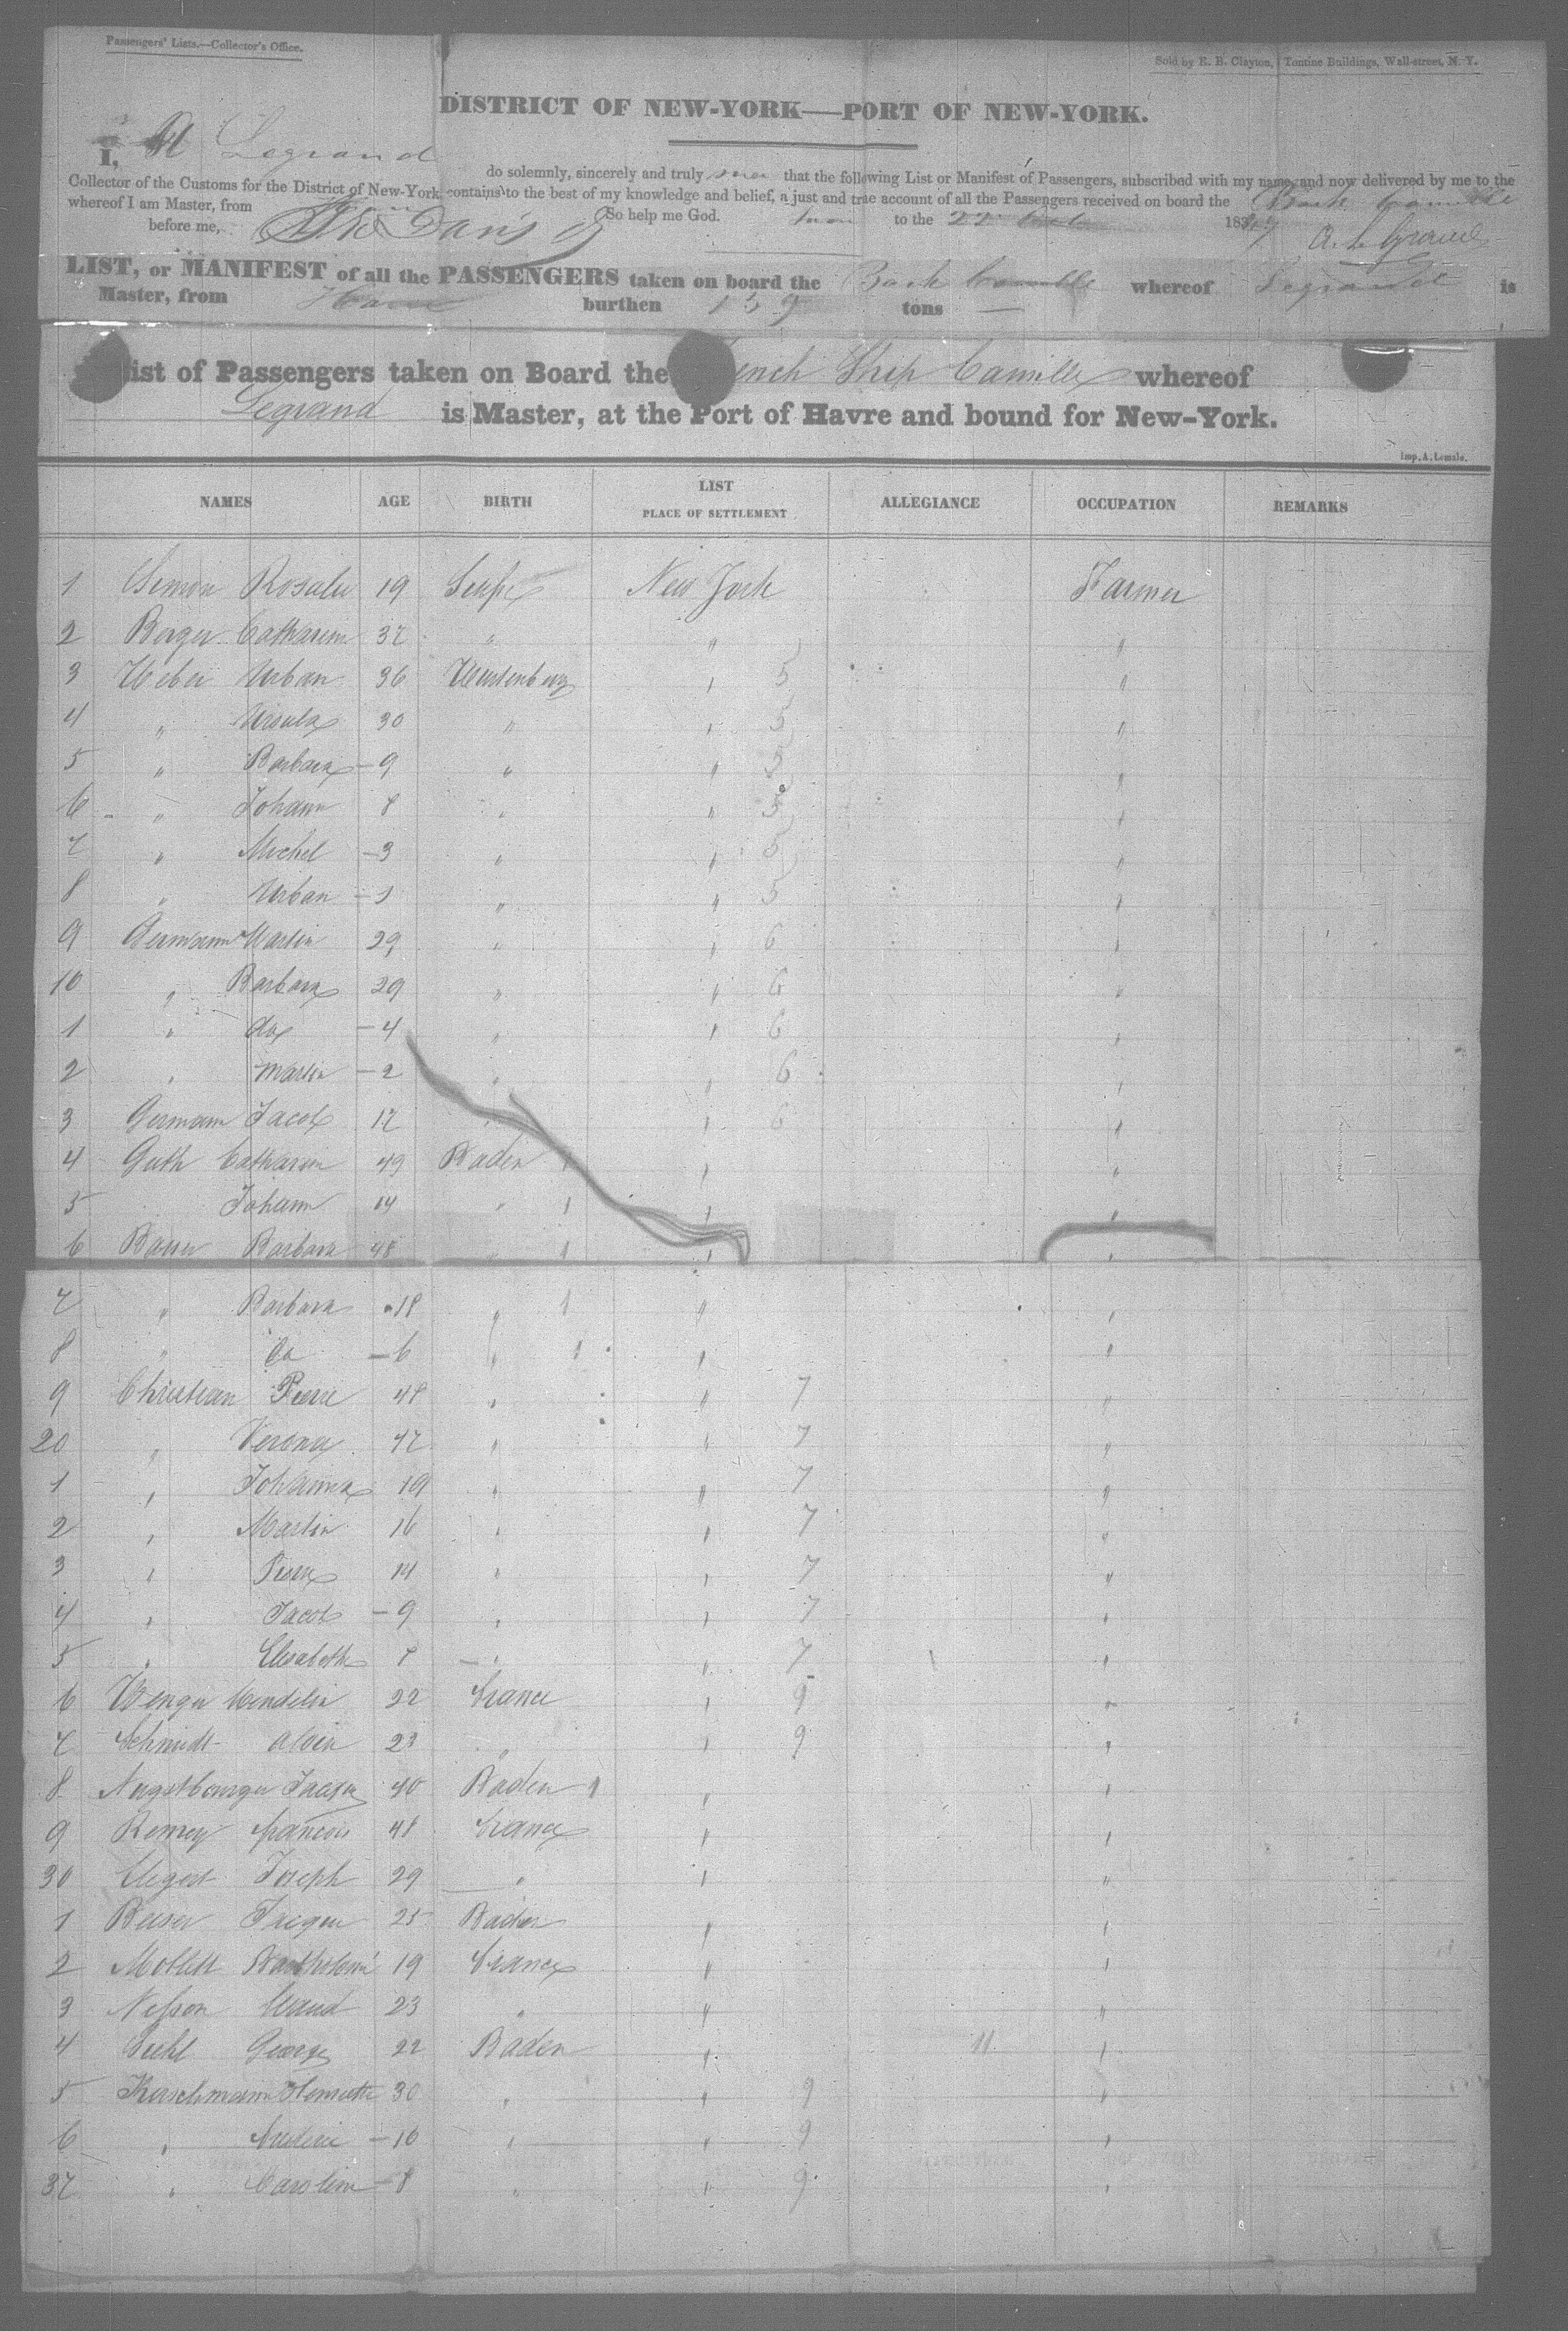 Passengers' Lists.—Collector's Office.
Sold by E. B. Clayton, Tontine Buildings, Wall-street, N. Y.
DISTRICT OF NEW-YORK—PORT OF NEW-YORK.
I, Legrand do solemnly, sincerely and truly that the following List or Manifest of Passengers, subscribed with my name, and now delivered by me to the
Collector of the Customs for the District of New-York, contains to the best of my knowledge and belief, a just and true account of all the Passengers received on board the Bark Camille
whereof I am Master, from So help me God. to the 22 183
before me,
LIST, or MANIFEST of all the PASSENGERS taken on board the Bark Camille whereof Legrand is
Master, from Havre burthen 159 tons —
List of Passengers taken on Board the French Ship Camille whereof
Legrand is Master, at the Port of Havre and bound for New-York.
Imp. A. Lemale.
NAMES AGE BIRTH LIST PLACE OF SETTLEMENT ALLEGIANCE OCCUPATION REMARKS
1 Simon Rosalie 19 New York Farmer
2 Berger Catharin 37 " " "
3 Weber Urban 36 Wurtenberg " 5 "
4 " Ursula 30 " " 5 "
5 " Barbara — 9 " " 5 "
6 " Johann 8 " " 5 "
7 " Michel — 3 " " 5 "
8 " Urban — 1 " " 5 "
9 Germann Martin 29 " " 6 "
10 " Barbara 29 " " 6 "
1 " do — 4 " " 6 "
2 " Martin — 2 " " 6 "
3 Germann Jacob 17 " " 6 "
4 Guth Catharin 49 Baden " "
5 Johann 14 " " "
6 Barbara 48 " " "
7 " Barbara 18 " " "
8 " — 6 " " "
9 Christian Pierre 48 " " 7 "
20 " Verona 47 " " 7 "
1 " Johanna 19 " " 7 "
2 " Martin 16 " " 7 "
3 " Pierre 14 " " 7 "
4 " Jacob — 9 " " 7 "
5 " Elisabeth 8 " " 7 "
6 Wenger Wendelin 22 France " 9 "
7 Schmidt 23 " " 9 "
8 40 Baden " "
9 Remey Francois 48 France " "
30 Joseph 29 " " "
1 25 Baden " "
2 19 France " "
3 23 " " "
4 George 22 Baden " 11 "
5 Kirschmann Henriette 30 " " 9 "
6 " — 10 " " 9 "
37 " Carolin — 8 " " 9 "